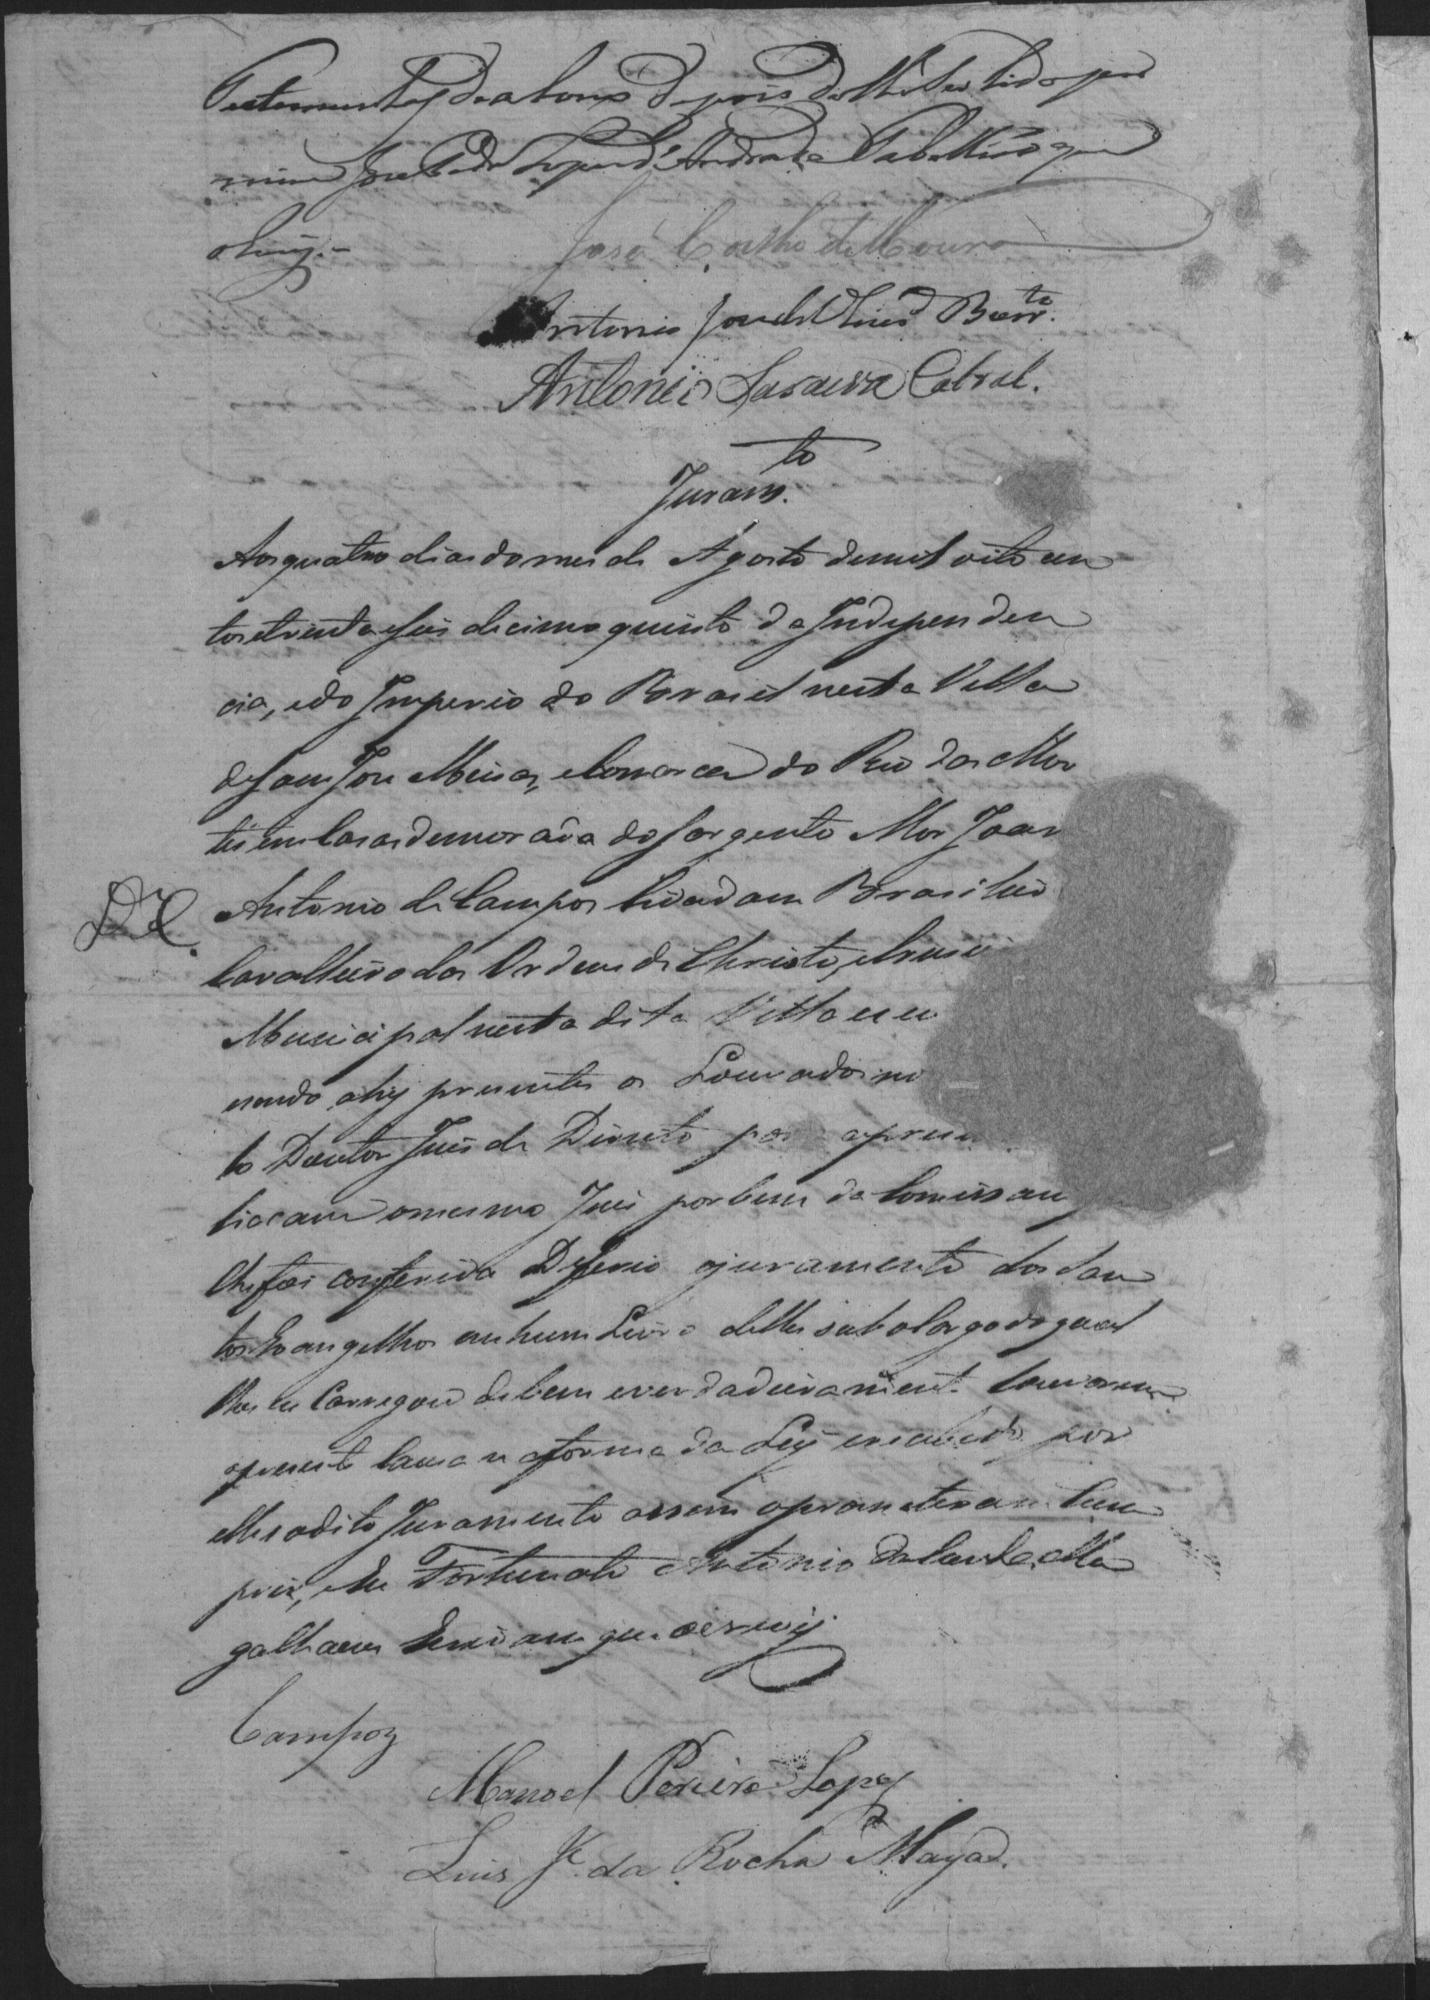 Testemunhas de abono depois de lhe ser lido por
mim José Pedro Lopes d'Andrade Tabelliao que
o Escrevy.-
José Coelho de Moura
Antonio José de Oliv.ª Barr.to
Antonio Saraiva Cabral.
Juram.to
Aos quatro dias do mes de Agosto de mil oito cen
tos e trinta e seis decimo quinto da Independen
cia, e do Imperio do Brasil nesta Villa
de Sam José Minas, e Comarca do Rio das Mor
tes em Casas de morada do Sargento Mor Joam
Antonio de Campos Cidadam Brasileiro
Cavalheiro da Ordem de Christo, e Juis
Municipal nesta dita Villa e
sendo ahy presentes os Louvados no
to Doutor Juis de Direito para apren
liacam o mesmo Juis por bem da Comissam
lhe foi conferida Deferio o juramento dos San
tos Evangelhos em hum Livro delles sub cargo do qual
lhes en Carregou de bem e verdadeiramente Louvarem
a presente Causa na forma da Ley e recebido por
elles o dito Juramento assim o prometeram Cum
prir, e Eu Fortunato Antonio da Camara Ma
galhaens Escrivam que escrevy
Campoz
Manoel Pereira Lopes
Luis J.e da Rocha Maya.